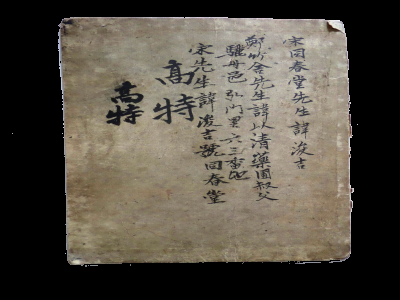 宋同春堂先生諱浚吉
鄭竹舍先生諱以清藥圃叔父
驪州邑弘門里六三番地
宋先生諱浚吉號同春堂
高特
高特